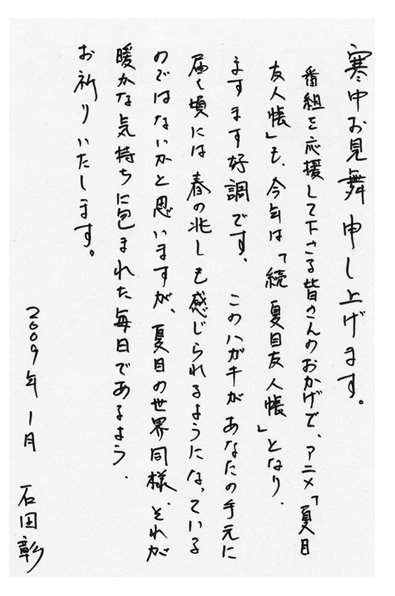 寒中お見舞申し上げます。
番組を応援して下さる皆さんのおかげで、アニメ「夏目
友人帳」も、今年は「続 夏目友人帳」となり、
ますます好調です。 このハガキがあなたの手元に
届く頃には春の兆しも感じられるようになっている
のではないかと思いますが、夏目の世界同様、それが
暖かな気持ちに包まれた毎日であるよう、
お祈りいたします。
2009年 1月 石田彰